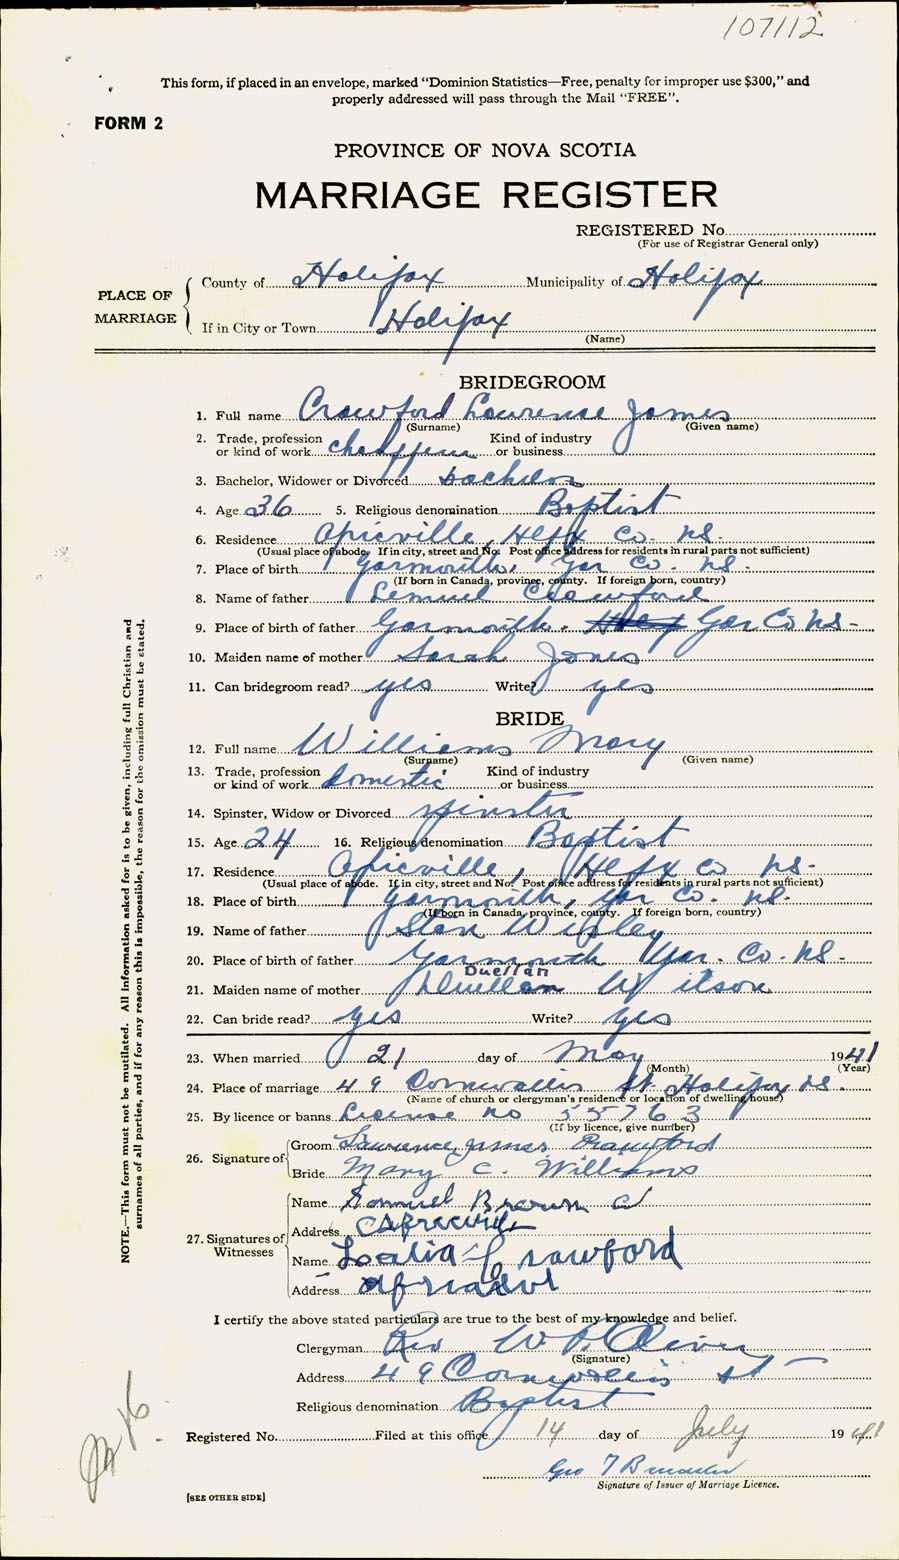 107112
This form, if placed in an envelope, marked "Dominion Statistics—Free, penalty for improper use $300," and
properly addressed will pass through the Mail "FREE".
FORM 2
PROVINCE OF NOVA SCOTIA
MARRIAGE REGISTER
REGISTERED No.
(For use of Registrar General only)
PLACE OF MARRIAGE
County of Halifax Municipality of Halifax
If in City or Town Halifax
(Name)
BRIDEGROOM
1. Full name Crawford Lawrence James
(Surname) (Given name)
2. Trade, profession or kind of work chauffeur Kind of industry or business
3. Bachelor, Widower or Divorced bachelor
4. Age 36 5. Religious denomination Baptist
6. Residence Africville, Hlfx Co. NS.
(Usual place of abode. If in city, street and No. Post office address for residents in rural parts not sufficient)
7. Place of birth Yarmouth, Yar Co. NS.
(If born in Canada, province, county. If foreign born, country)
8. Name of father Lemuel Crawford
9. Place of birth of father Yarmouth. Yar Co NS-
10. Maiden name of mother Sarah Jones
11. Can bridegroom read? yes Write? yes
BRIDE
12. Full name Williams Mary
(Surname) (Given name)
13. Trade, profession or kind of work domestic Kind of industry or business
14. Spinster, Widow or Divorced spinster
15. Age 24 16. Religious denomination Baptist
17. Residence Africville, Hlfx Co NS-
(Usual place of abode. If in city, street and No. Post office address for residents in rural parts not sufficient)
18. Place of birth Yarmouth, Yar Co. NS.
(If born in Canada, province, county. If foreign born, country)
19. Name of father Stan
20. Place of birth of father Yarmouth Yar. Co. NS-
Duellan
21. Maiden name of mother Duellan Wilson
22. Can bride read? yes Write? yes
23. When married 21 day of May 1941
(Month) (Year)
24. Place of marriage 49 Cornwallis St. Halifax NS.
(Name of church or clergyman's residence or location of dwelling house)
25. By licence or banns License no 55763
(If by licence, give number)
26. Signature of Groom Lawrence James Crawford
Bride Mary C. Williams
27. Signatures of Witnesses
Name Samuel Brown
Address
Name Crawford
Address
I certify the above stated particulars are true to the best of my knowledge and belief.
Clergyman Rev W. P. Oliver
(Signature)
Address 49 Cornwallis St
Religious denomination Baptist
Registered No. Filed at this office 14 day of July 1941
Geo
Signature of Issuer of Marriage Licence.
[SEE OTHER SIDE]
NOTE.—This form must not be mutilated. All information asked for is to be given, including full Christian and
surnames of all parties, and if for any reason this is impossible, the reason for the omission must be stated.